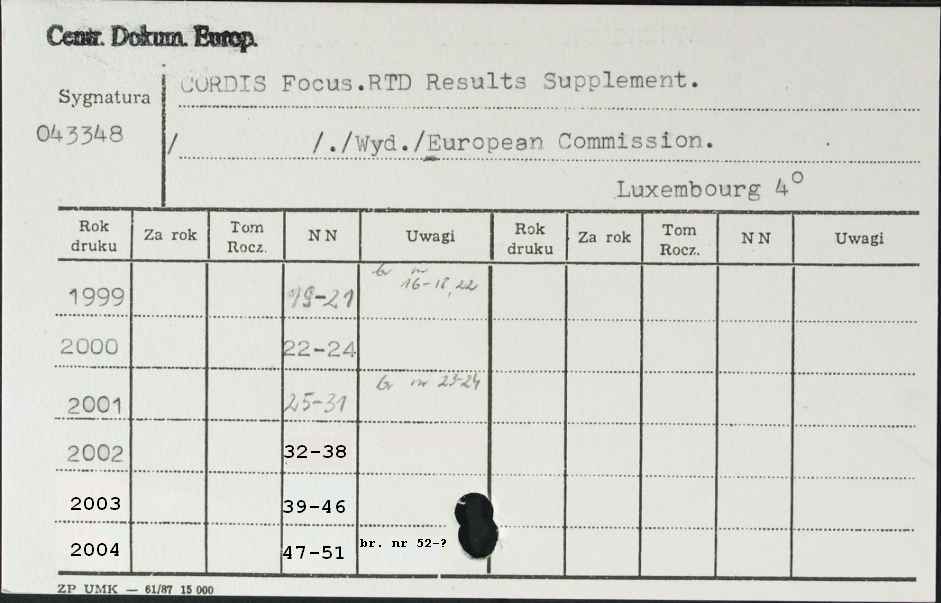 Centr. Dokum. Europ.
CORDIS Focus.RTD Results Supplement.
Sygnatura
043348
/ /./Wyd./European Commission.
Luxembourg 4°
Rok druku Za rok Tom Rocz. NN Uwagi Rok druku Za rok Tom Rocz. NN Uwagi
1999 19-21 br nr 16-18, 22
2000 22-24
2001 25-31 br nr 23-24
2002 32-38
2003 39-46
2004 47-51 br. nr 52-?
ZP UMK — 61/87 15 000